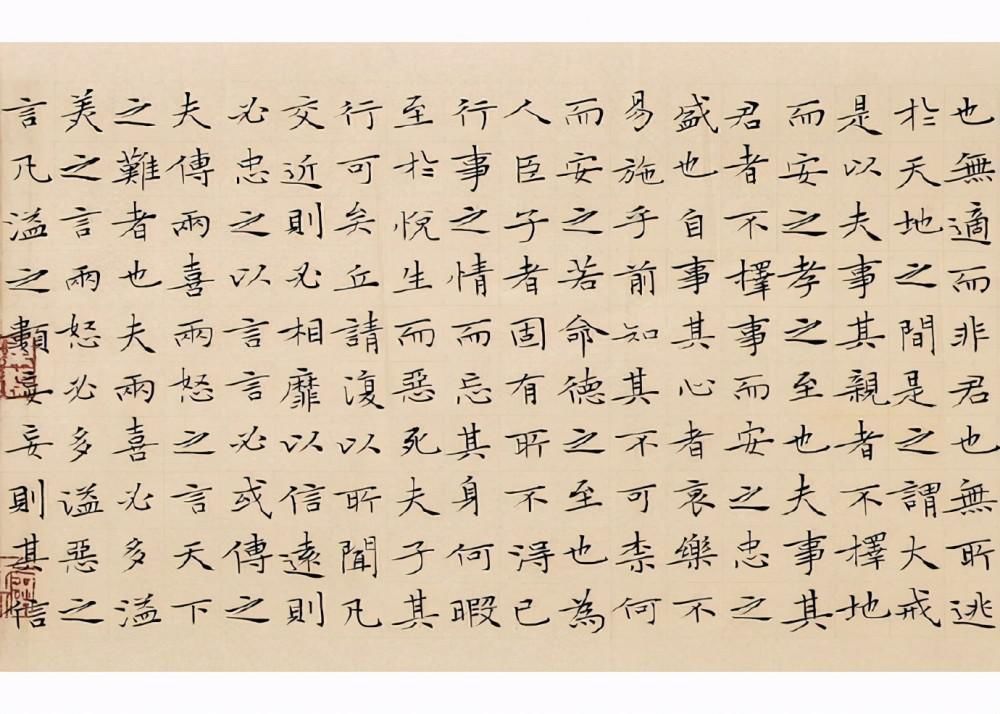 也無適而非君也無所逃
於天地之間是之謂大戒
是以夫事其親者不擇地
而安之孝之至也夫事其
君者不擇事而安之忠之
盛也自事其心者哀樂不
易施乎前知其不可柰何
而安之若命德之至也為
人臣子者固有所不得已
行事之情而忘其身何暇
至於悅生而惡死夫子其
行可矣丘請復以所聞凡
交近則必相靡以信遠則
必忠之以言言必或傳之
夫傳兩喜兩怒之言天下
之難者也夫兩喜必多溢
美之言兩怒必多溢惡之
言凡溢之類妄妄則其信